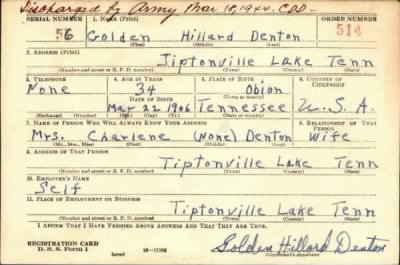 Discharged by Army Mar 18, 1944. CDD-
SERIAL NUMBER 1. NAME (Print) ORDER NUMBER
56 Golden Hillard Denton 514
(First) (Middle) (Last)
2. ADDRESS (Print)
Tiptonville Lake Tenn
(Number and street or R. F. D. number) (Town) (County) (State)
3. TELEPHONE 4. AGE IN YEARS 5. PLACE OF BIRTH 6. COUNTRY OF CITIZENSHIP
None 34 Obion
DATE OF BIRTH (Town or county)
Mar 22 1906 Tennessee U.S.A.
(Exchange) (Number) (Mo.) (Day) (Yr.) (State or country)
7. NAME OF PERSON WHO WILL ALWAYS KNOW YOUR ADDRESS 8. RELATIONSHIP OF THAT PERSON
Mrs. Charlene (none) Denton Wife
(Mr., Mrs., Miss) (First) (Middle) (Last)
9. ADDRESS OF THAT PERSON
Tiptonville Lake Tenn
(Number and street or R. F. D. number) (Town) (County) (State)
10. EMPLOYER'S NAME
Self
11. PLACE OF EMPLOYMENT OR BUSINESS
Tiptonville Lake Tenn
(Number and street or R. F. D. number) (Town) (County) (State)
I AFFIRM THAT I HAVE VERIFIED ABOVE ANSWERS AND THAT THEY ARE TRUE.
REGISTRATION CARD
D. S. S. Form 1 (over) 16—17105 Golden Hillard Denton
(Registrant's signature)